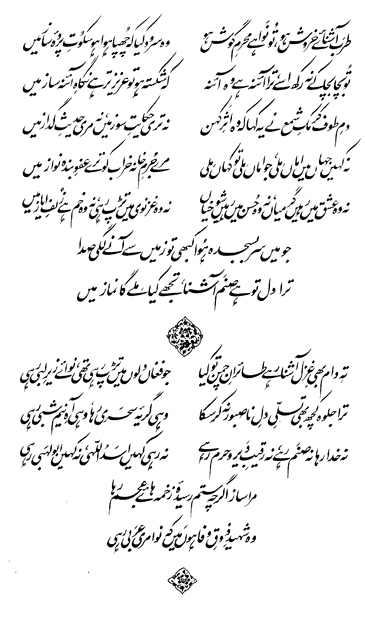 طرب آشنائے خروش ہو، تو نوا ہے محرم گوش ہو وہ سرود کیا کہ چھپا ہوا ہو سکوت پردۂ ساز میں
تو بچا بچا کے نہ رکھ اسے، ترا آئنہ ہے وہ آئنہ کہ شکستہ ہو تو عزیز تر ہے نگاہ آئنہ ساز میں
دم طوف کرمک شمع نے یہ کہا کہ وہ اثر کہن نہ تری حکایت سوز میں، نہ مری حدیث گداز میں
نہ کہیں جہاں میں اماں ملی، جو اماں ملی تو کہاں ملی مرے جرم خانہ خراب کو ترے عفو بندہ نواز میں
نہ وہ عشق میں رہیں گرمیاں، نہ وہ حسن میں رہیں شوخیاں نہ وہ غزنوی میں تڑپ رہی، نہ وہ خم ہے زلف ایاز میں
جو میں سر بسجدہ ہوا کبھی تو زمیں سے آنے لگی صدا
ترا دل تو ہے صنم آشنا، تجھے کیا ملے گا نماز میں
تہ دام بھی غزل آشنا رہے طائران چمن تو کیا جو فغاں دلوں میں تڑپ رہی تھی، نوائے زیر لبی رہی
ترا جلوہ کچھ بھی تسلی دل ناصبور نہ کر سکا وہی گریۂ سحری رہا، وہی آہ نیم شبی رہی
نہ خدا رہا نہ صنم رہے، نہ رقیب دیر و حرم رہے نہ رہی کہیں اسد اللہی، نہ کہیں ابولہبی رہی
مرا ساز اگرچہ ستم رسیدۂ زخمہ ہائے عجم رہا
وہ شہید ذوق وفا ہوں میں کہ نوا مری عربی رہی